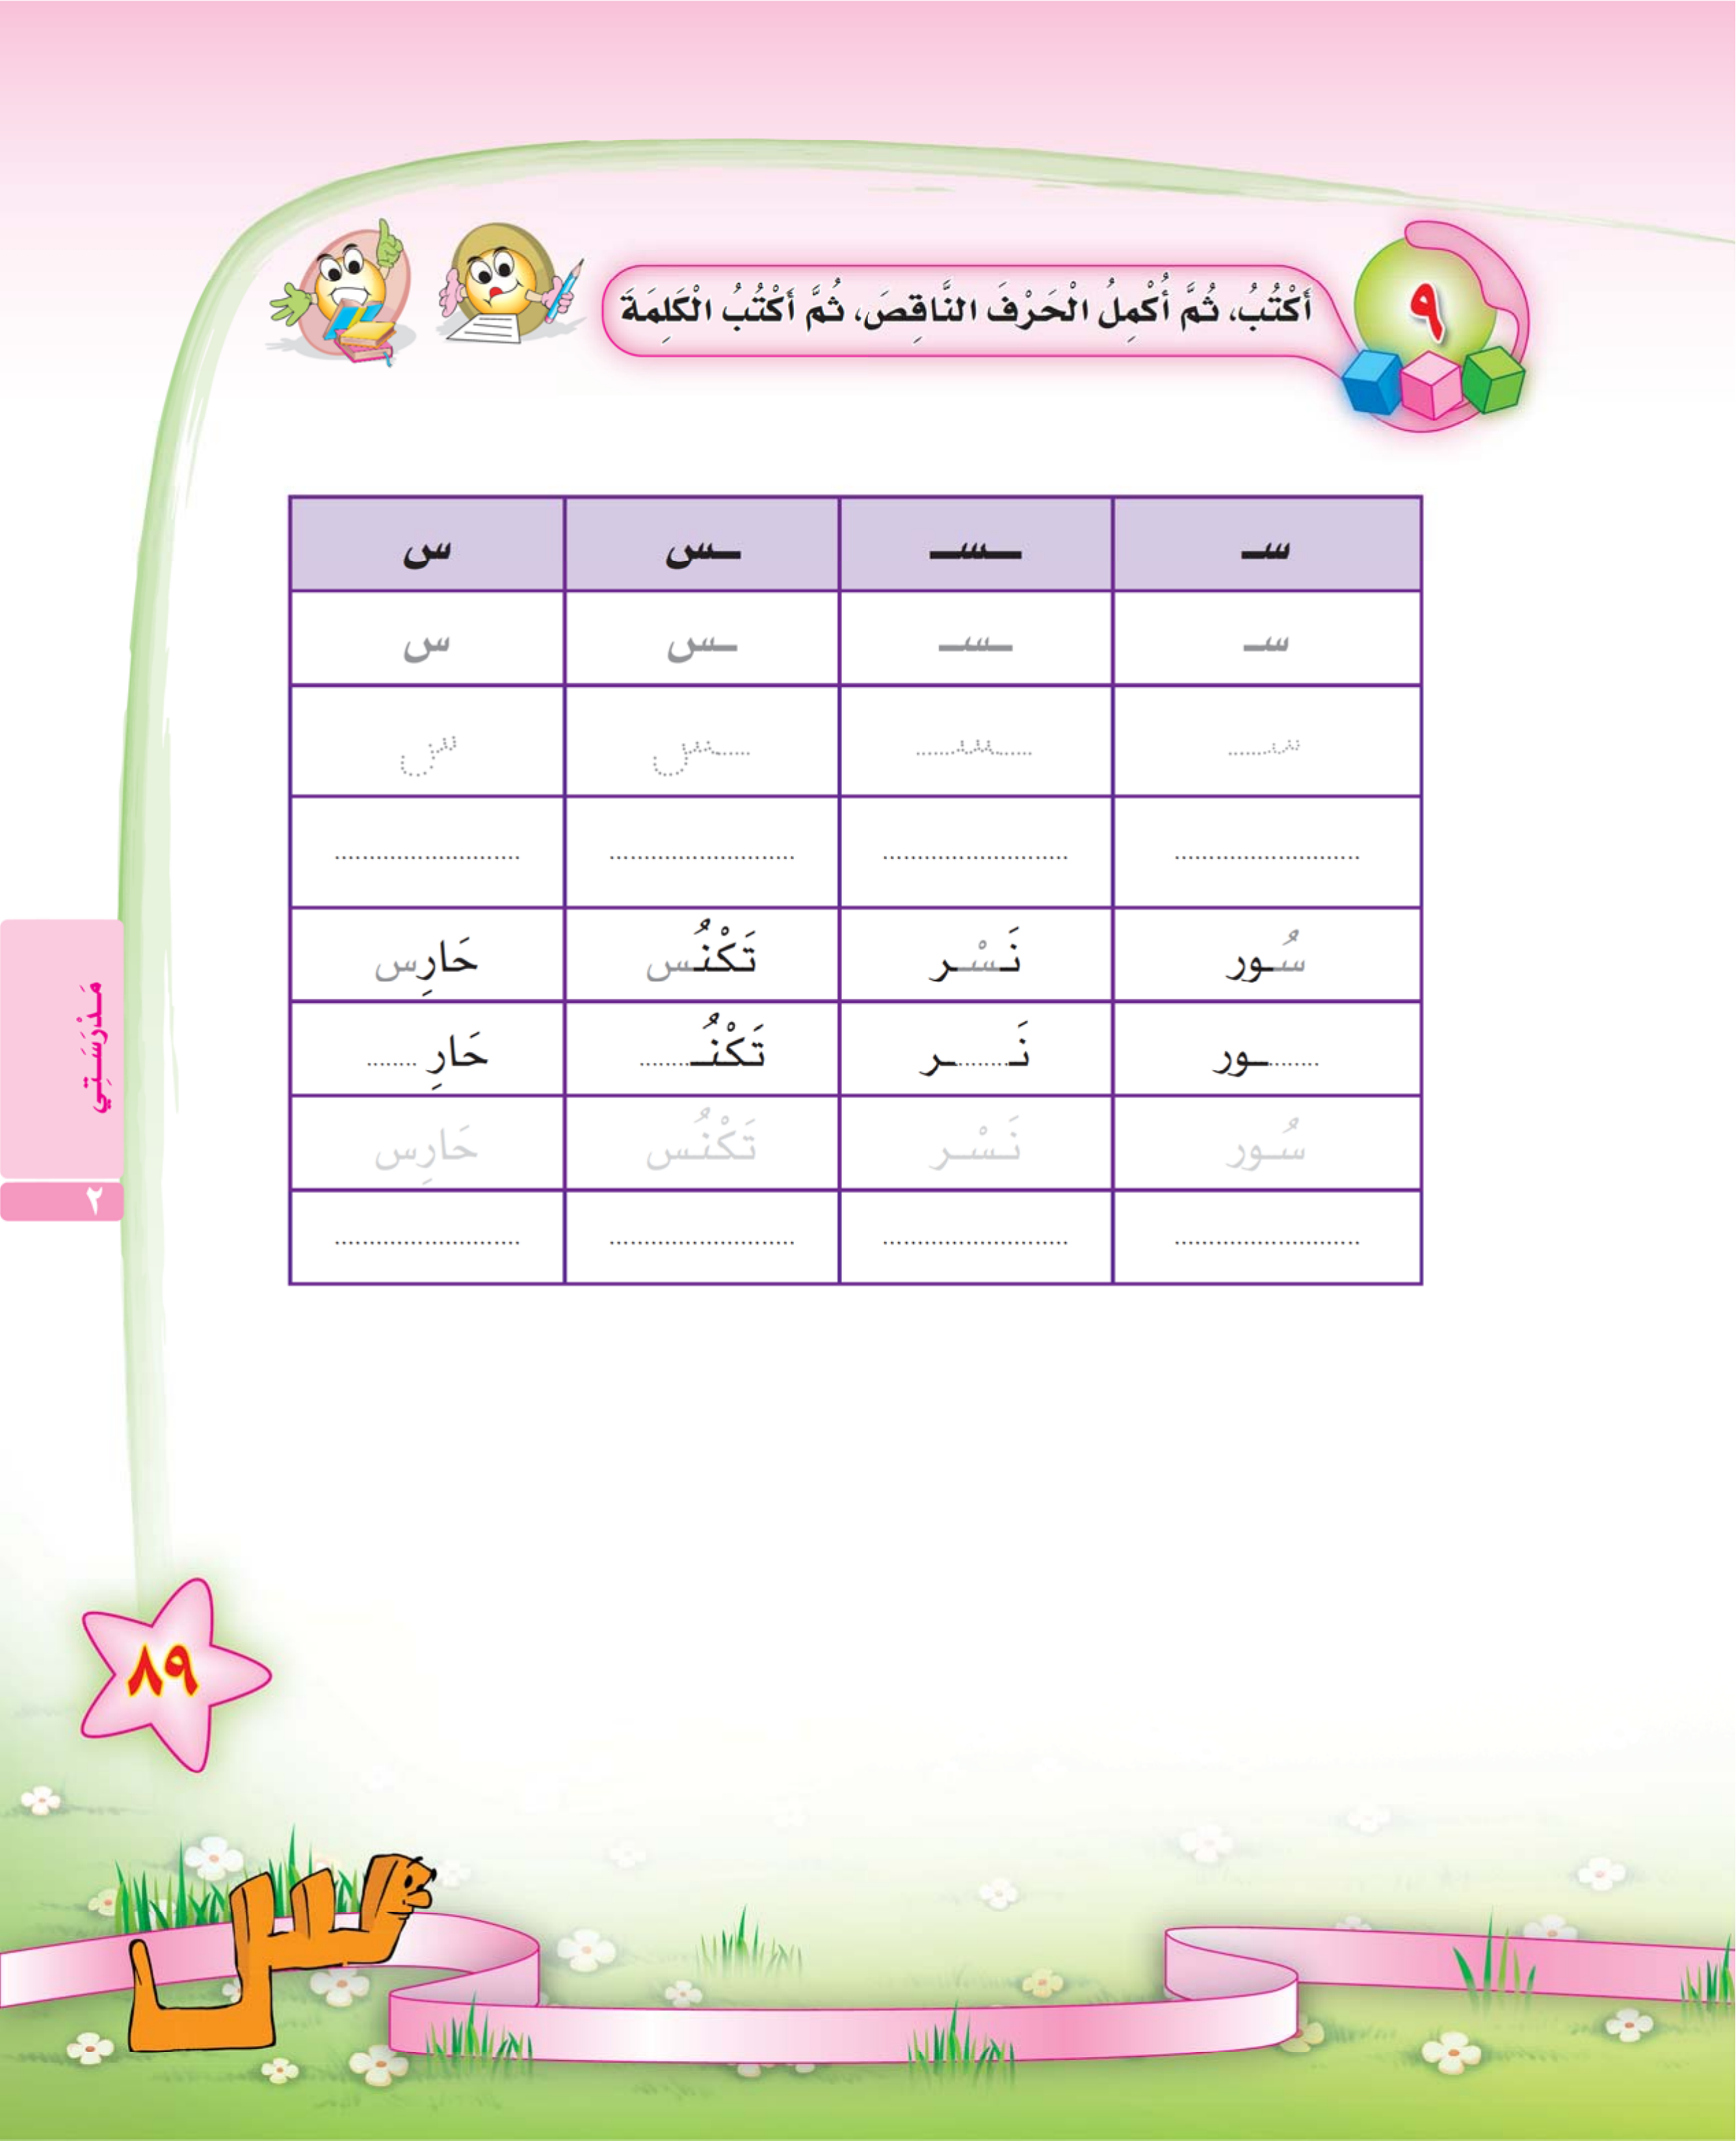 ٩
أَكْتُبُ، ثُمَّ أُكْمِلُ الْحَرْفَ النَّاقِصَ، ثُمَّ أَكْتُبُ الْكَلِمَةَ
سـ ـسـ ـس س
سـ ـسـ ـس س
سـ ـسـ ـس س
.......................... .......................... .......................... ..........................
سُـور نَـسْـر تَكْنُـس حَارِس
........ـور نَـ........ـر تَكْنُـ........ حَارِ ........
سُـور نَـسْـر تَكْنُـس حَارِس
.......................... .......................... .......................... ..........................
مَـدْرَسَـتِـي
٢
٨٩
س